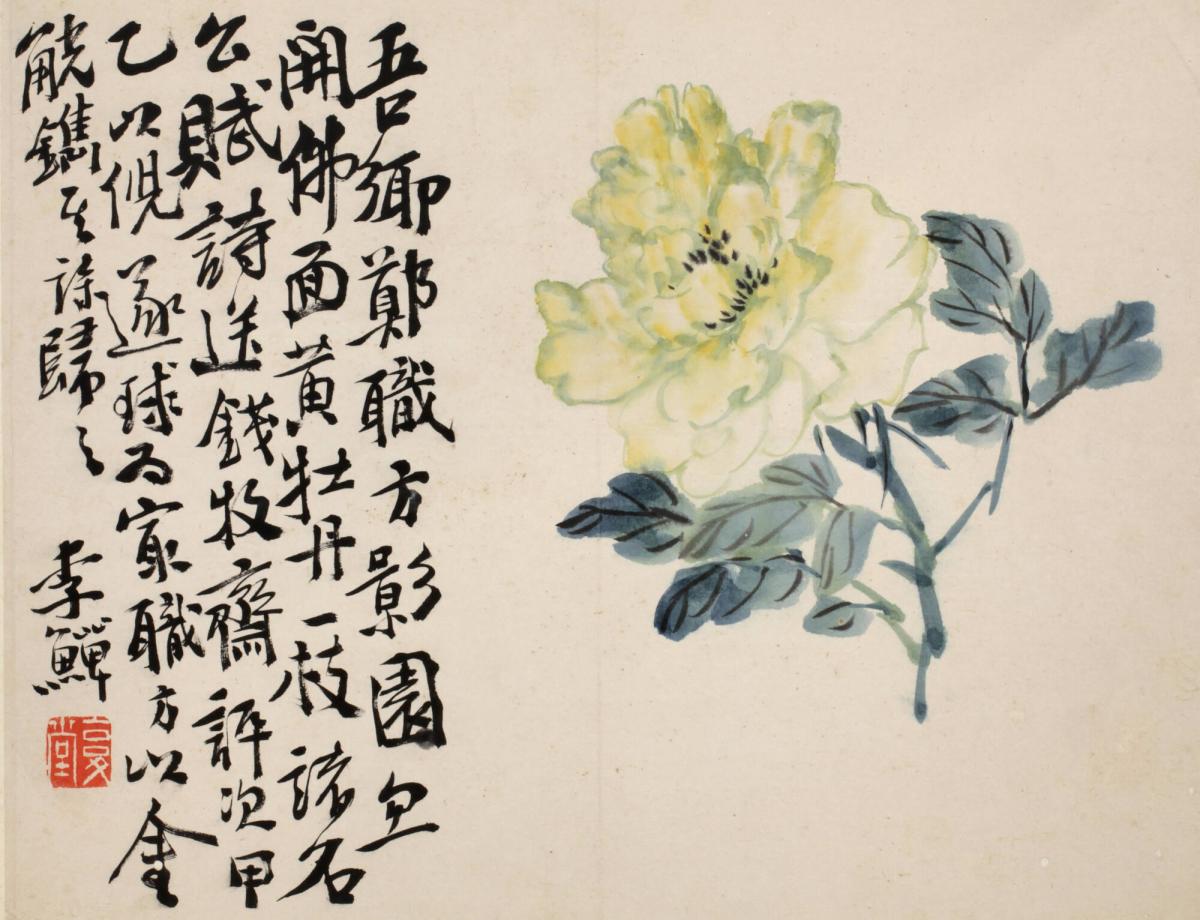 吾鄉鄭職方影園忽
開佛面黃牡丹一枝諸名
公賦詩送錢牧齋評次甲
乙以倪遂球為冣職方以金
觥鐫其詠歸之 李鱓